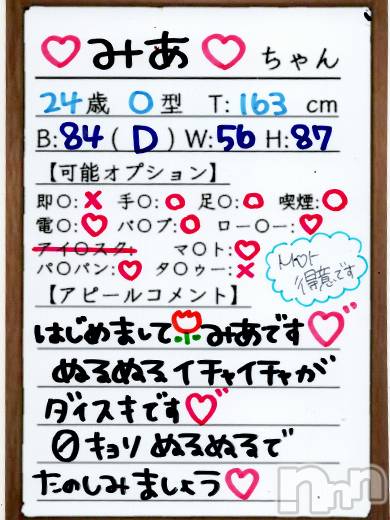 ♡みあ♡ちゃん
24歳 O型 T:163 cm
B:84(D)W:56 H:87
【可能オプション】
即〇:× 手〇:○ 足〇:○ 喫煙:○
電〇:♡ バ〇ブ:○ ロー〇ー:♡
アイ〇スク: マ〇ト:♡
パ〇パン:♡ タ〇ゥー:×
M〇ト
得意です
【アピールコメント】
はじめまして🌷みあです♡
ぬるぬるイチャイチャが
ダイスキです♡
0キョリぬるぬるで
たのしみましょう♡